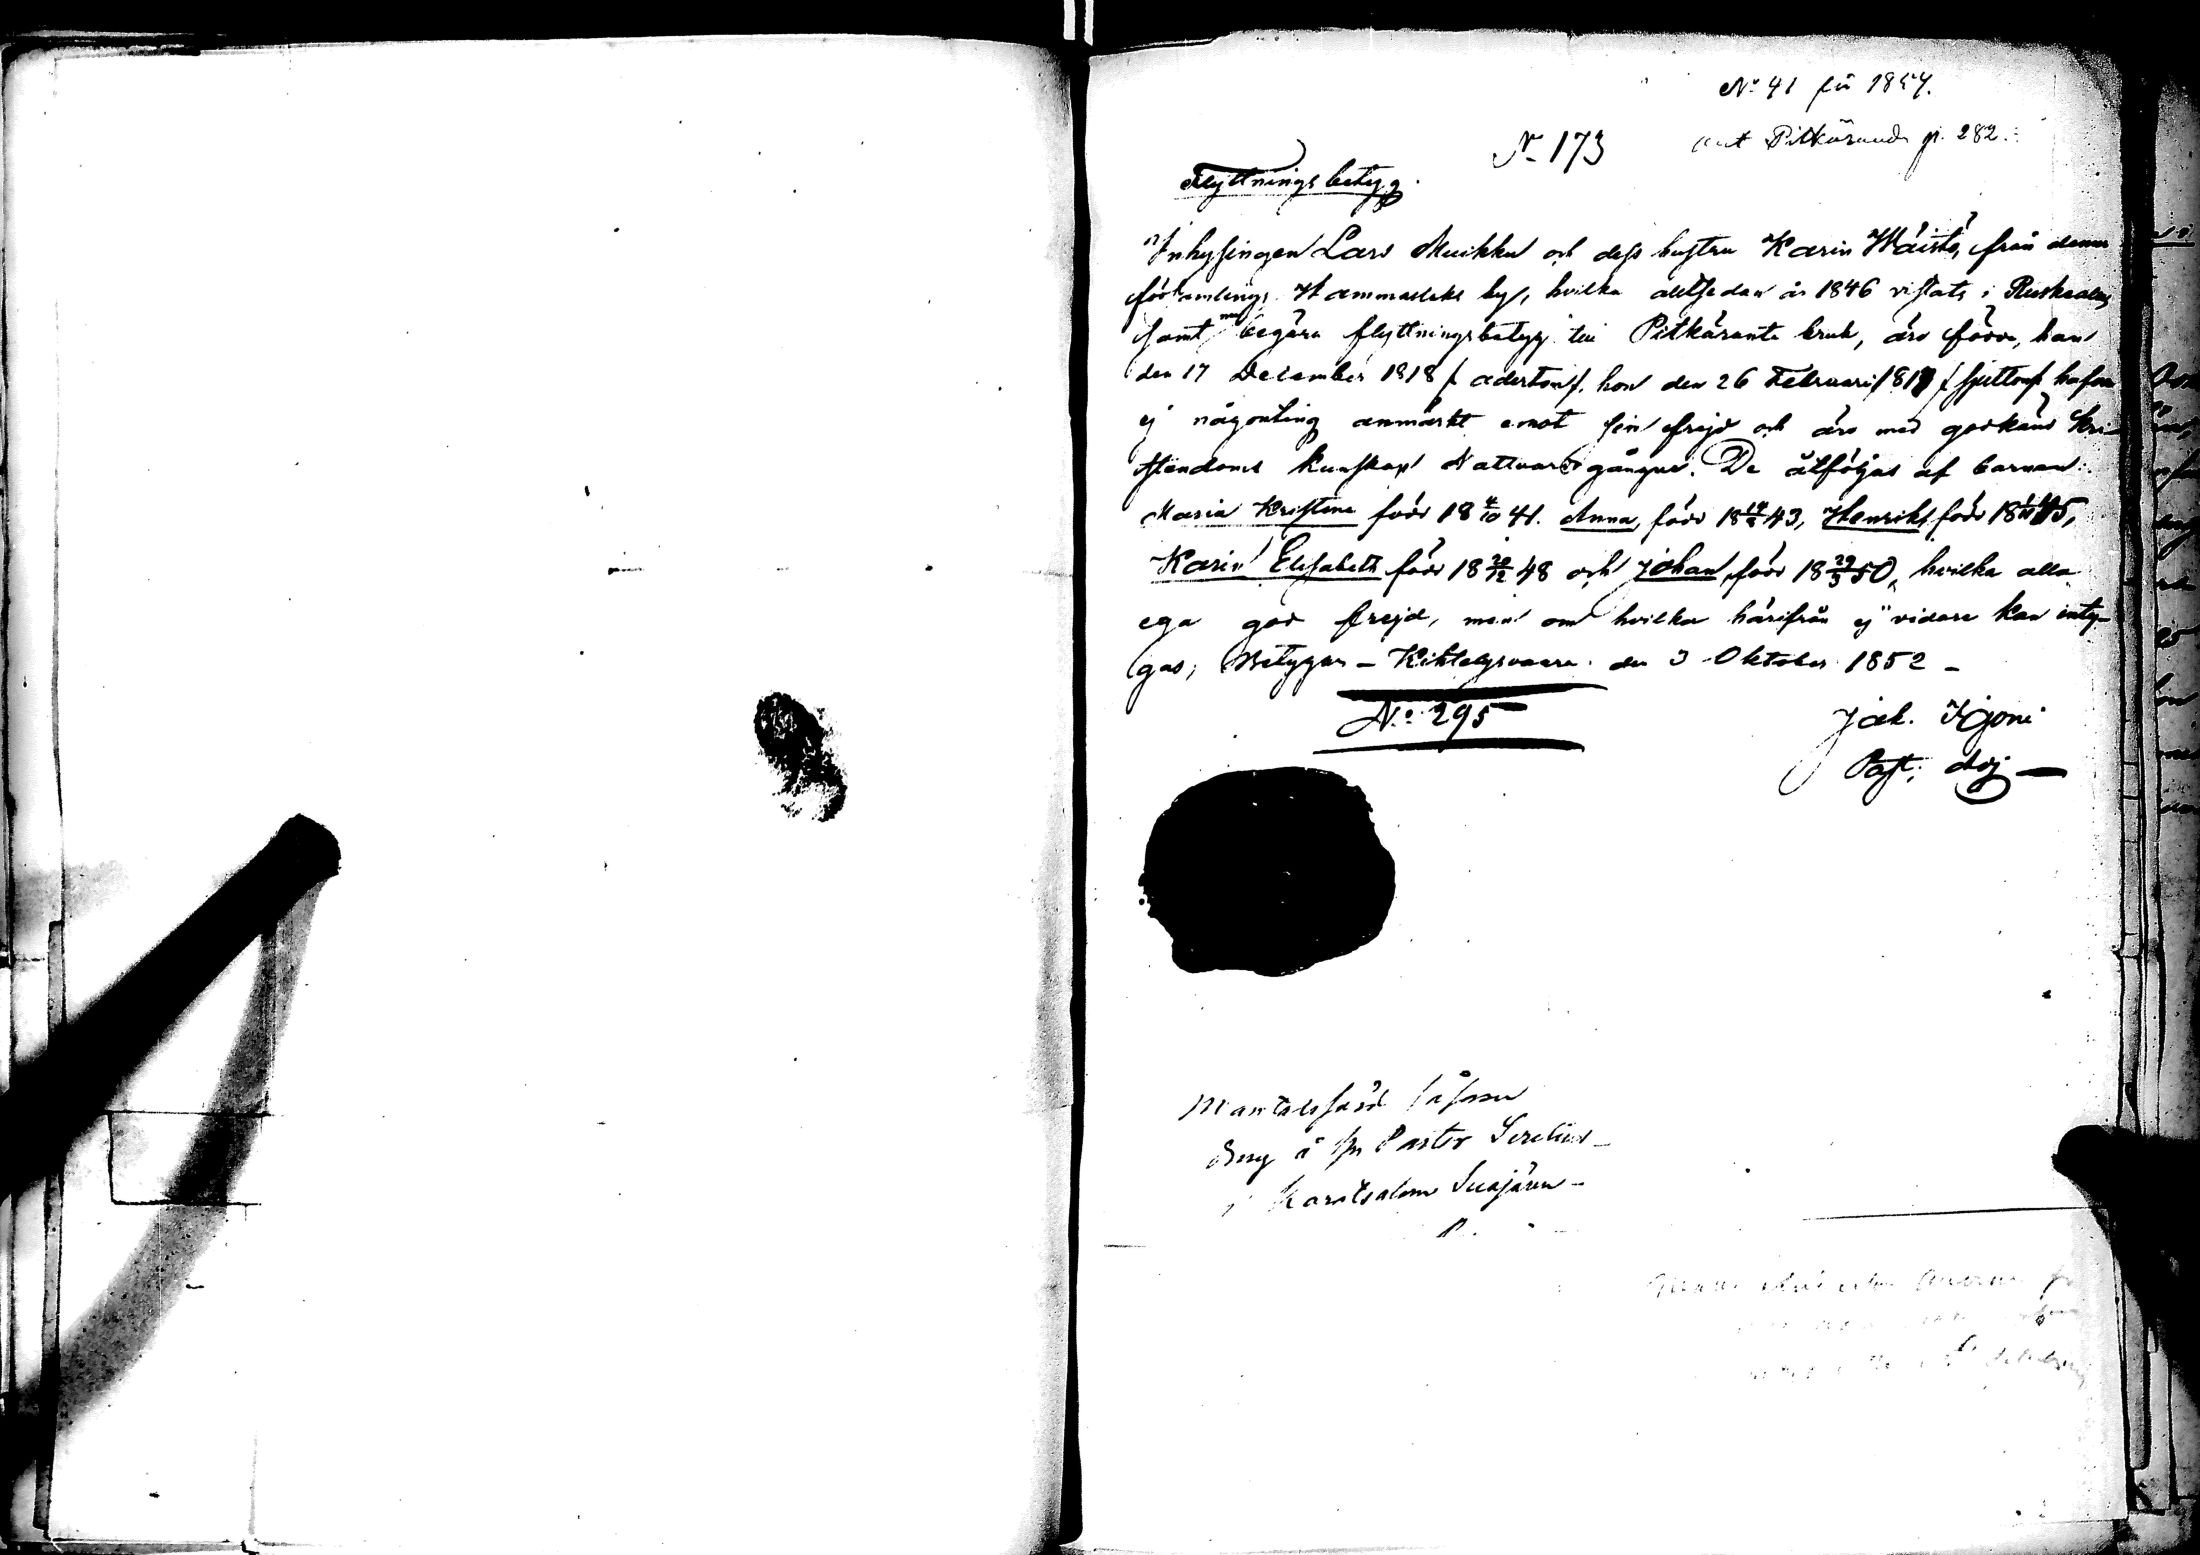 No 41 för 1854.
ant Pitkäranda p. 282.
No 173
Flyttningsbetyg.
Inhysingen Lars Muikku och dess hustru Karin Wäistö, från denna
församlings Hammaslaks by, hvilka alltsedan år 1846 vistats i Ruskeala,
samt nu begära flyttningsbetyg till Pitkäranta bruk, äro födde, han
den 17 December 1818 /: aderton :/. hon den 26 Februari 1817 /: sjutton :/ hafva
ej någonting anmärkt emot sin frejd och äro med godkänd Kri-
stendoms kunskap Nattvardsgångne. De åtföljas af barnen
Maria Kristina född 18 4/10 41. Anna, född 43, Henrik, född 45,
Karin Elisabeth född 18 20/12 48 och Johan, född 18 29/3 50, hvilka alla
ega god frejd, men om hvilka härifrån ej vidare kan inty-
gas; Betygar – Kihtelysvaara den 3 Oktober 1852 –
No 295
Jak. Igoni
Past. Adj
Mantalsförd
å Hr Pastor
i